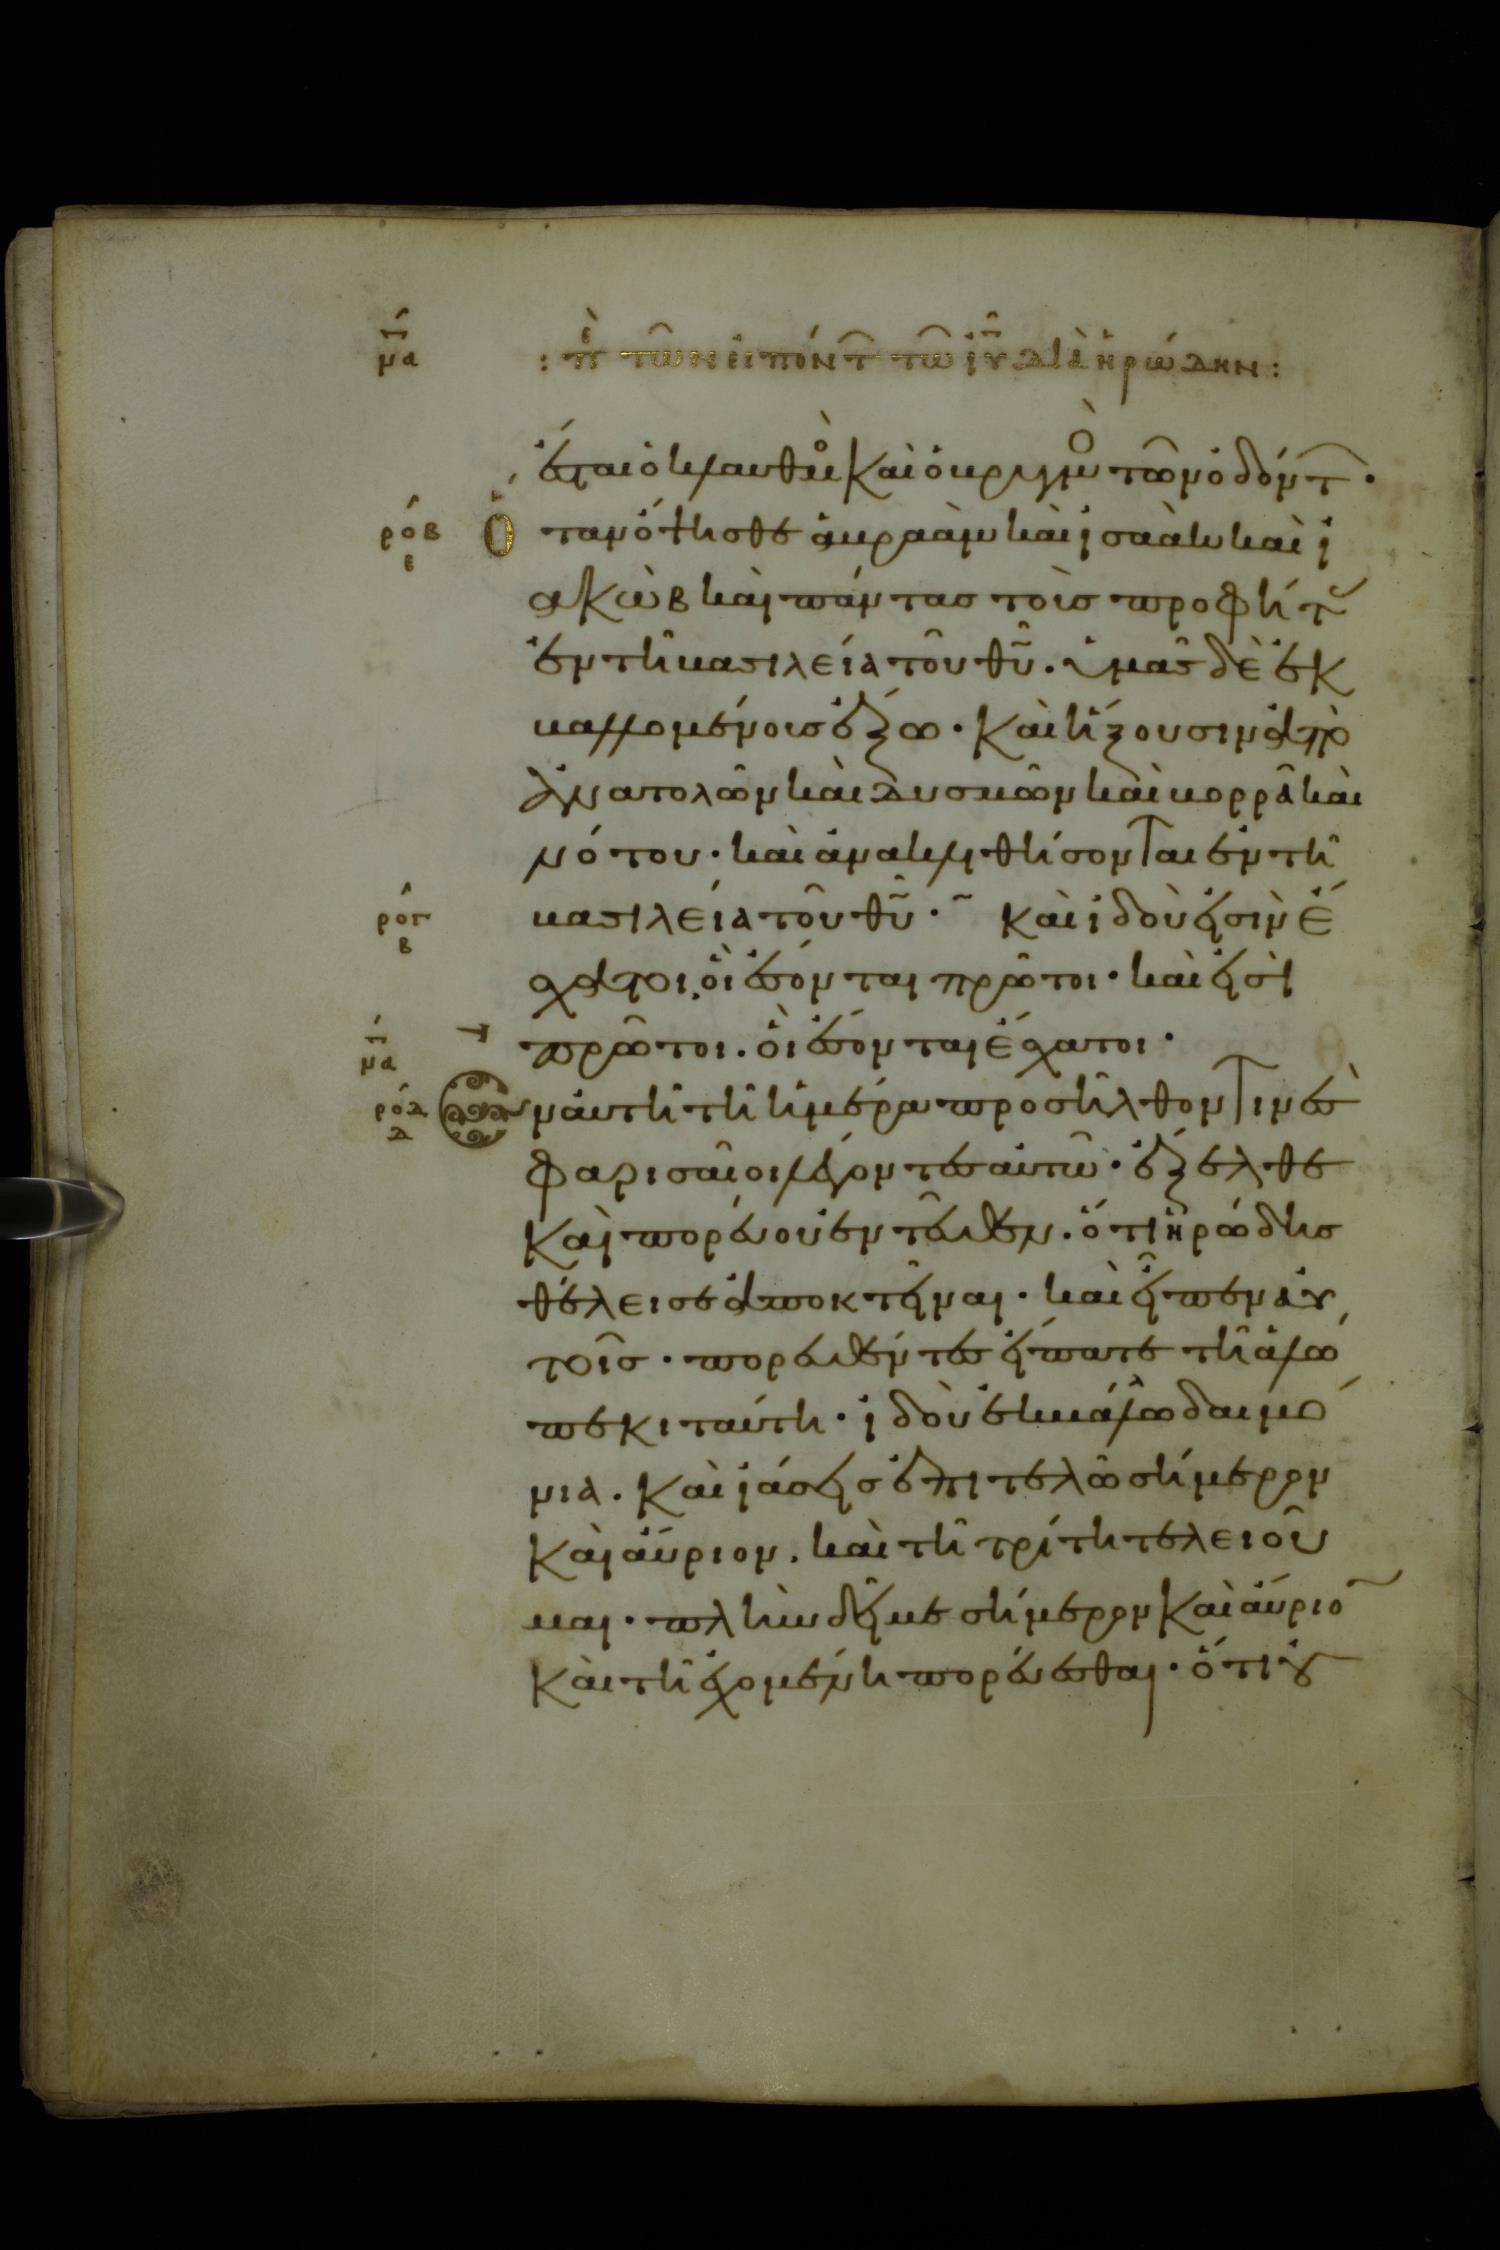 μα : πε τῶν εἰπόντ τῶ ἰῡ διὰ ἡρώδην :
ἔσται ὁ κλαυθμὸς καὶ ὁ βρυγμὸς τῶν ὀδόντ ·
ρόβ ε Ὅταν ὄψησθε ἀβραὰμ καὶ ἰσαὰκ καὶ ἰ
ακὼβ καὶ πάντας τοὺς προφήτ
ἐν τῆ βασιλεία τοῦ θῡ · ὑμᾶς δὲ ἐκ
βαλλομένους ἔξω · Καὶ ἥξουσιν ἀπὸ
ἀνατολῶν καὶ δυσμῶν καὶ βορρᾶ καὶ
νότου · καὶ ἀνακλιθήσονται ἐν τῆ
ρόγ β βασιλεία τοῦ θῡ · καὶ ἰδοὺ εἰσὶν ἔ
σχατοι, οἳ ἔσονται πρῶτοι · καὶ εἰσὶ
μα πρῶτοι · οἳ ἔσονται ἔσχατοι ·
ρόδ δ Ἐν αὐτῆ τῆ ἡμέρα προσῆλθον τινὲς
φαρισαῖοι λέγοντες αὐτῶ · ἔξελθε
καὶ πορεύου ἐντεῦθεν · ὅτι ἡρώδης
θέλει σε ἀποκτεῖναι · καὶ εἶπεν αὐ
τοῖς · πορευθέντες εἴπατε τῆ ἀλώ
πεκι ταύτη · ἰδοὺ ἐκβάλλω δαιμό
νια · καὶ ἰάσεις ἐπιτελῶ σήμερον
καὶ αὔριον · καὶ τῆ τρίτη τελειοῦ
μαι · πλὴν δεῖ με σήμερον καὶ αὔριο
καὶ τῆ ἐχομένη πορεύεσθαι · ὅτι οὐ